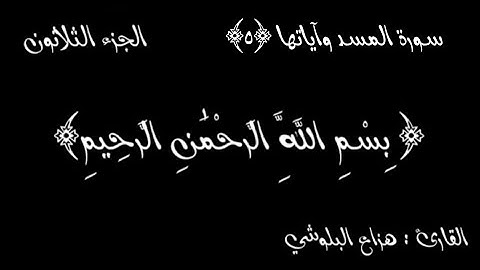 سورة المسد وآياتها ﴿٥﴾ الجزء الثلاثون
﴿ بِسْمِ اللَّهِ الرَّحْمَٰنِ الرَّحِيمِ ﴾
القارئ : هزاع البلوشي